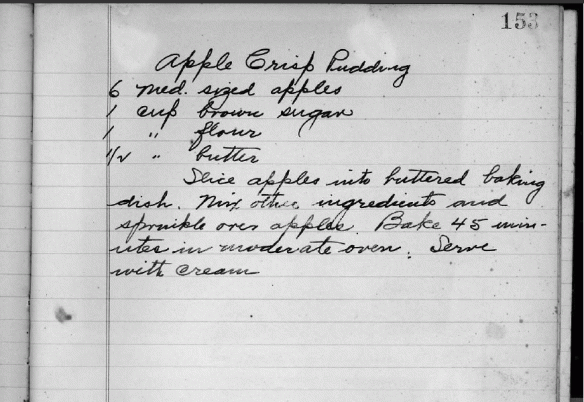 153
Apple Crisp Pudding
6 med. sized apples
1 cup brown sugar
1 " flour
1/2 " butter
Slice apples into buttered baking
dish. Mix other ingredients and
sprinkle over apples. Bake 45 min-
utes in moderate oven. Serve
with cream